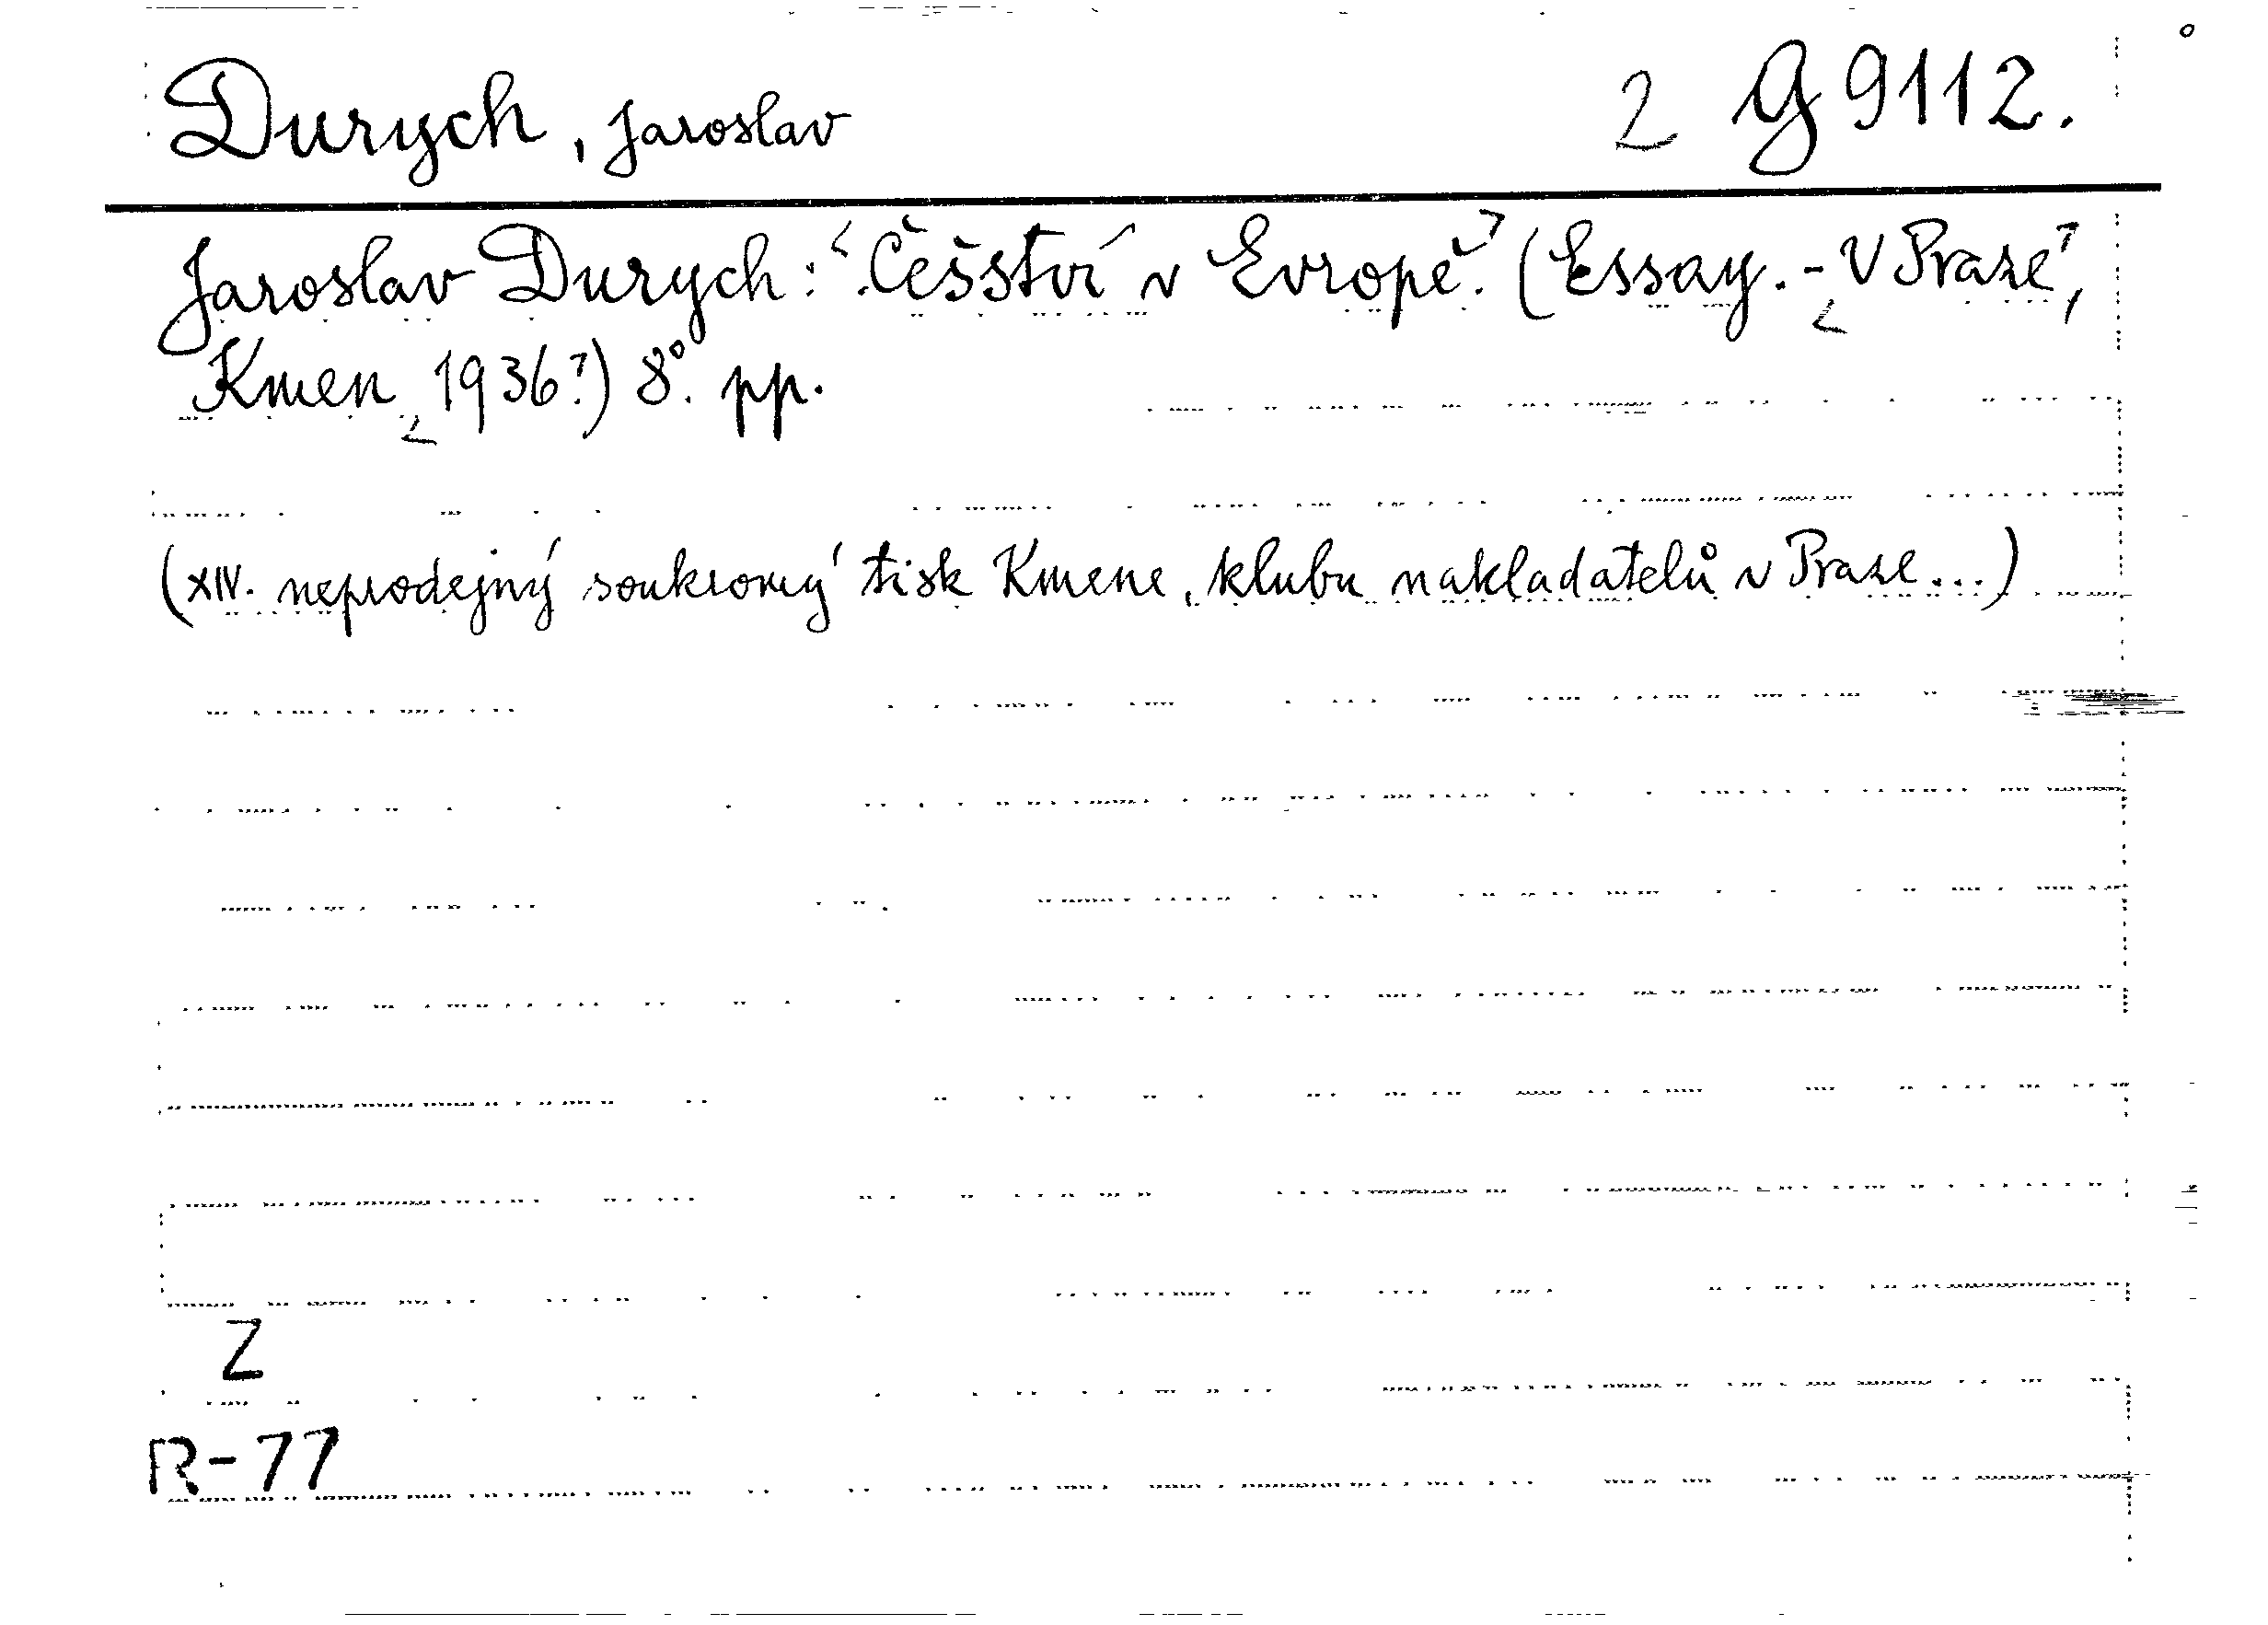 Durych, Jaroslav 2 G 9112.
Jaroslav Durych: Češství v Evropě. (Essay. - V Praze,
Kmen 1936?) 8°. pp.
(XIV. neprodejný soukromý tisk Kmene, klubu nakladatelů v Praze...)
Z
R-77